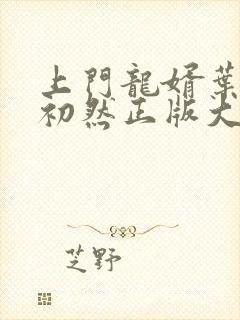 上門龍婿葉
初然正版大
芝野